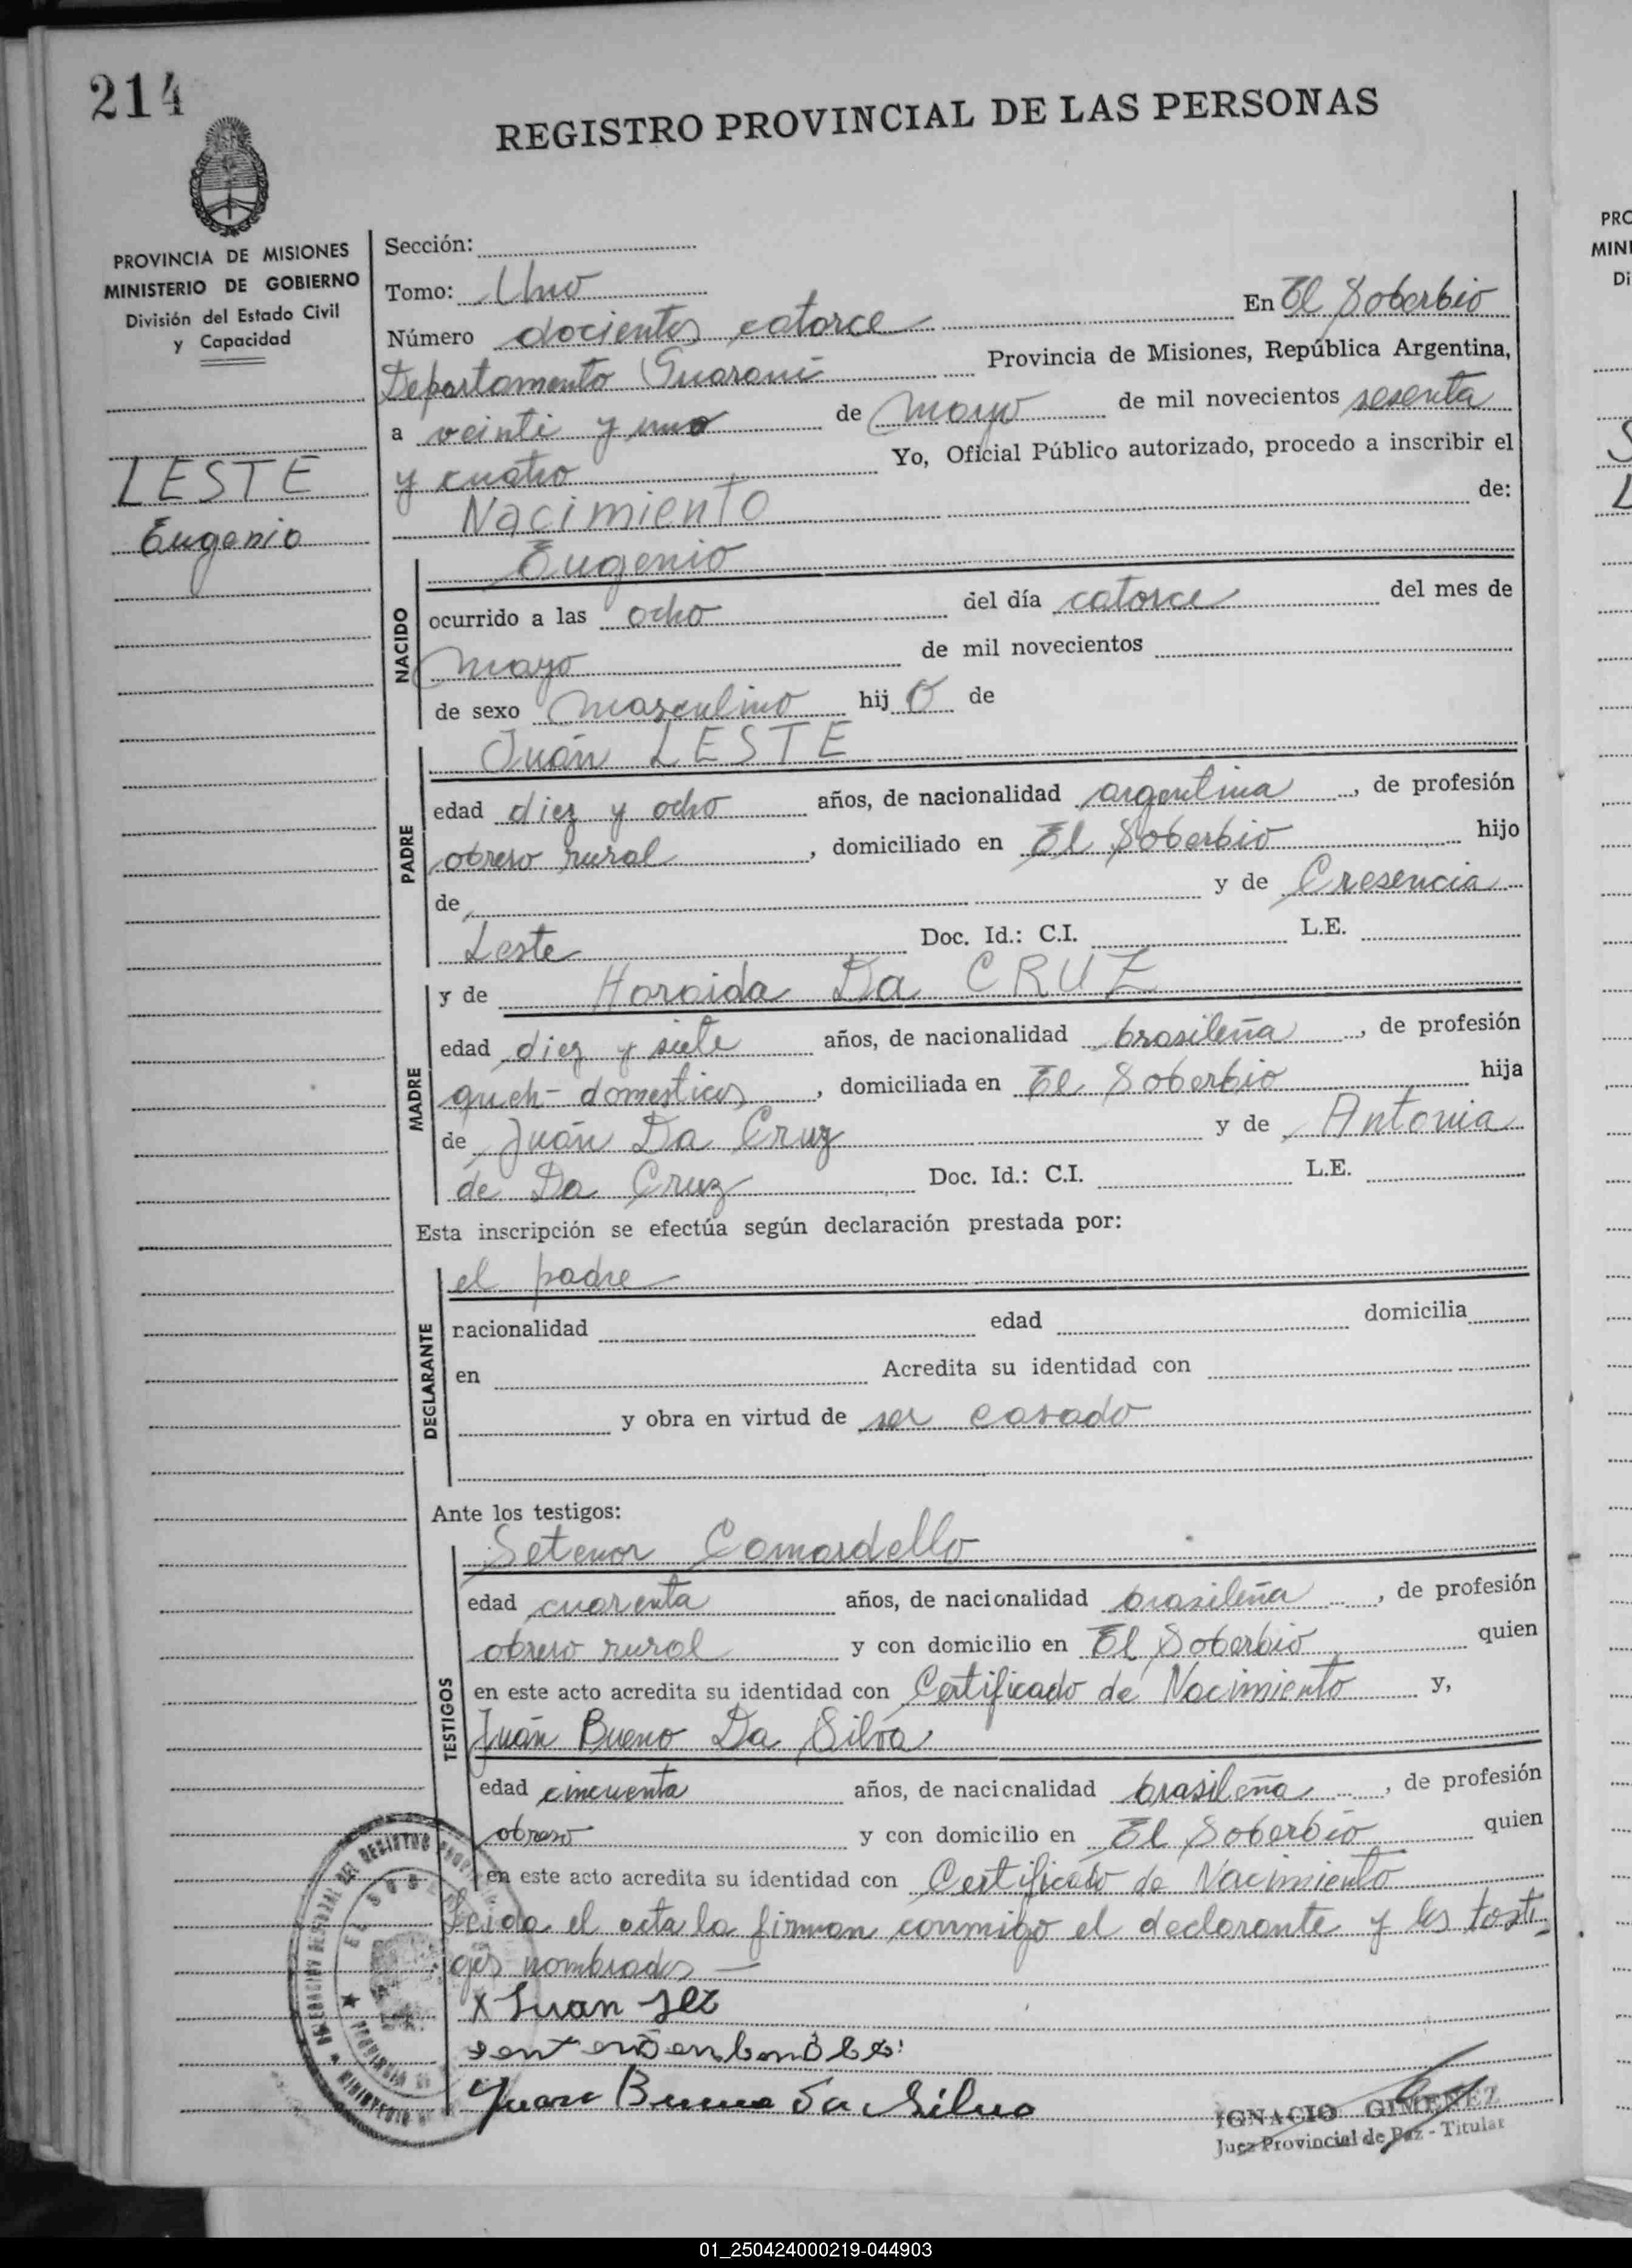 214
REGISTRO PROVINCIAL DE LAS PERSONAS
PROVINCIA DE MISIONES
MINISTERIO DE GOBIERNO
División del Estado Civil
y Capacidad
LESTE
Eugenio
Sección:
Tomo: Uno
Número docientos catorce En El Soberbio
Departamento Guarani Provincia de Misiones, República Argentina,
a veinti y uno de mayo de mil novecientos sesenta
y cuatro Yo, Oficial Público autorizado, procedo a inscribir el
Nacimiento de:
NACIDO
Eugenio
ocurrido a las ocho del día catorce del mes de
mayo de mil novecientos
de sexo masculino hij o de
PADRE
Juán LESTE
edad diez y ocho años, de nacionalidad argentina, de profesión
obrero rural, domiciliado en El Soberbio hijo
de y de Cresencia
Leste Doc. Id.: C.I. L.E.
MADRE
y de Horaida Da CRUZ
edad diez y siete años, de nacionalidad brasileña, de profesión
queh- domesticos, domiciliada en El Soberbio hija
de Juán Da Cruz y de Antonia
de Da Cruz Doc. Id.: C.I. L.E.
Esta inscripción se efectúa según declaración prestada por:
DECLARANTE
el padre
nacionalidad edad domicilia
en Acredita su identidad con
y obra en virtud de ser casado
Ante los testigos:
TESTIGOS
Setenor Comardello
edad cuarenta años, de nacionalidad brasileña, de profesión
obrero rural y con domicilio en El Soberbio quien
en este acto acredita su identidad con Certificado de Nacimiento y,
Juán Bueno Da Silva
edad cincuenta años, de nacionalidad brasileña, de profesión
obrero y con domicilio en El Soberbio quien
en este acto acredita su identidad con Certificado de Nacimiento
Leida el acta la firman conmigo el declarante y los testi-
gos nombrados —
x Juan
Juan Bueno da Silva
IGNACIO GIMENEZ
Juez Provincial de Paz - Titular
01_250424000219-044903